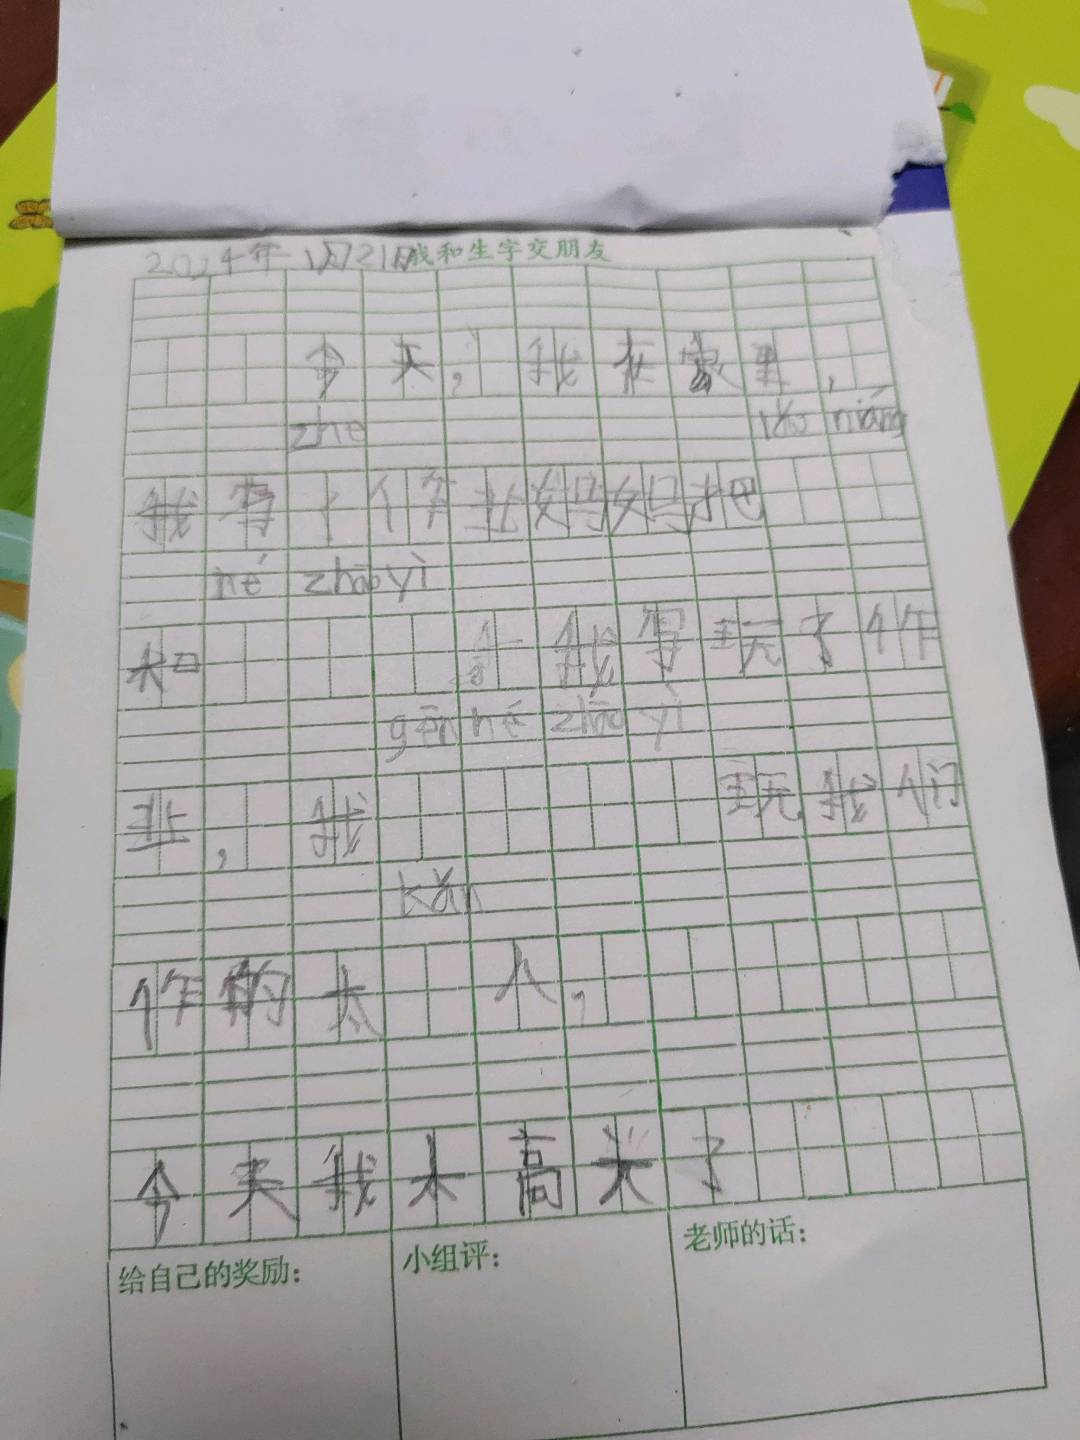 2024年1月21日我和生字交朋友
今天,我在家里,
zhe yǎo niáng
我写了个作业妈妈把
hé zhāo yì
和 我写玩了作
gēn hé zhāo yì
业,我 玩我们
kǎn
作的太 人,
今天我太高兴了
给自己的奖励:
小组评:
老师的话: